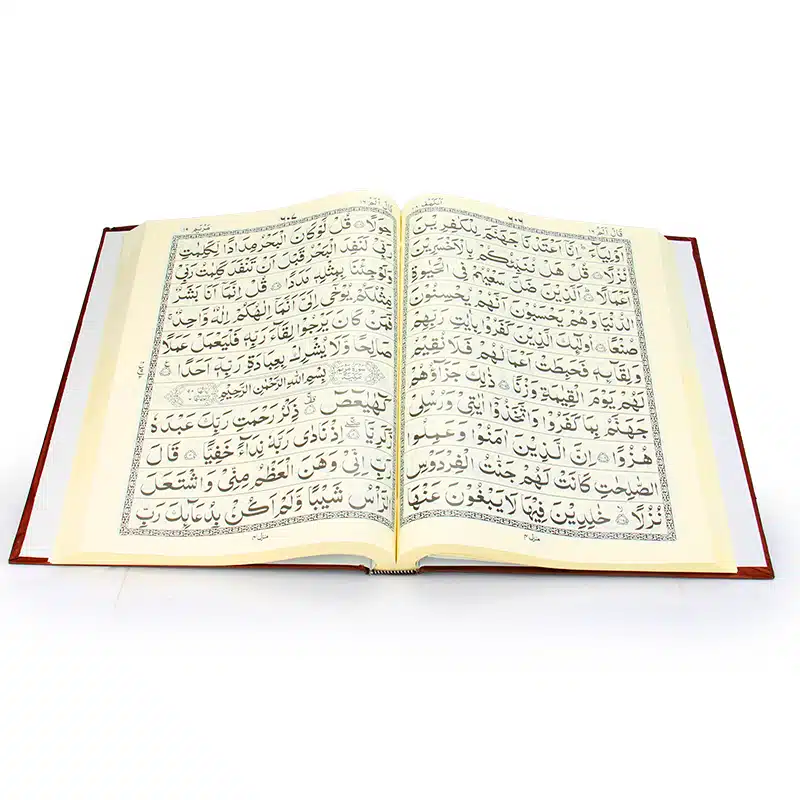 قَالَ اَلَمْ ١٦ ٦٠٦ اَلْكَهْف ١٨
اَوْلِيَآءَ ؕ اِنَّاۤ اَعْتَدْنَا جَهَنَّمَ لِلْكٰفِرِيْنَ
نُزُلًا ۝ قُلْ هَلْ نُنَبِّئُكُمْ بِالْاَخْسَرِيْنَ
اَعْمَالًا ۝ اَلَّذِيْنَ ضَلَّ سَعْيُهُمْ فِي الْحَيٰوةِ
الدُّنْيَا وَهُمْ يَحْسَبُوْنَ اَنَّهُمْ يُحْسِنُوْنَ
صُنْعًا ۝ اُولٰٓئِكَ الَّذِيْنَ كَفَرُوْا بِاٰيٰتِ رَبِّهِمْ
وَلِقَآئِهٖ فَحَبِطَتْ اَعْمَالُهُمْ فَلَا نُقِيْمُ
لَهُمْ يَوْمَ الْقِيٰمَةِ وَزْنًا ۝ ذٰلِكَ جَزَآؤُهُمْ
جَهَنَّمُ بِمَا كَفَرُوْا وَاتَّخَذُوْۤا اٰيٰتِيْ وَرُسُلِيْ
هُزُوًا ۝ اِنَّ الَّذِيْنَ اٰمَنُوْا وَعَمِلُوا
الصّٰلِحٰتِ كَانَتْ لَهُمْ جَنّٰتُ الْفِرْدَوْسِ
نُزُلًا ۝ خٰلِدِيْنَ فِيْهَا لَا يَبْغُوْنَ عَنْهَا
منزل ٤
قَالَ اَلَمْ ١٦ ٦٠٧ مَرْيَم ١٩
حِوَلًا ۝ قُلْ لَّوْ كَانَ الْبَحْرُ مِدَادًا لِّكَلِمٰتِ
رَبِّيْ لَنَفِدَ الْبَحْرُ قَبْلَ اَنْ تَنْفَدَ كَلِمٰتُ رَبِّيْ
وَلَوْ جِئْنَا بِمِثْلِهٖ مَدَدًا ۝ قُلْ اِنَّمَاۤ اَنَا بَشَرٌ
مِّثْلُكُمْ يُوْحٰۤى اِلَيَّ اَنَّمَاۤ اِلٰهُكُمْ اِلٰهٌ وَّاحِدٌ ۚ
فَمَنْ كَانَ يَرْجُوْا لِقَآءَ رَبِّهٖ فَلْيَعْمَلْ عَمَلًا
صَالِحًا وَّلَا يُشْرِكْ بِعِبَادَةِ رَبِّهٖۤ اَحَدًا ۝
بِسْمِ اللّٰهِ الرَّحْمٰنِ الرَّحِيْمِ
كٓهٰيٰعٓصٓ ۝ ذِكْرُ رَحْمَتِ رَبِّكَ عَبْدَهٗ
زَكَرِيَّا ۝ اِذْ نَادٰى رَبَّهٗ نِدَآءً خَفِيًّا ۝ قَالَ
رَبِّ اِنِّيْ وَهَنَ الْعَظْمُ مِنِّيْ وَاشْتَعَلَ
الرَّاْسُ شَيْبًا وَّلَمْ اَكُنْۢ بِدُعَآئِكَ رَبِّ
منزل ٤